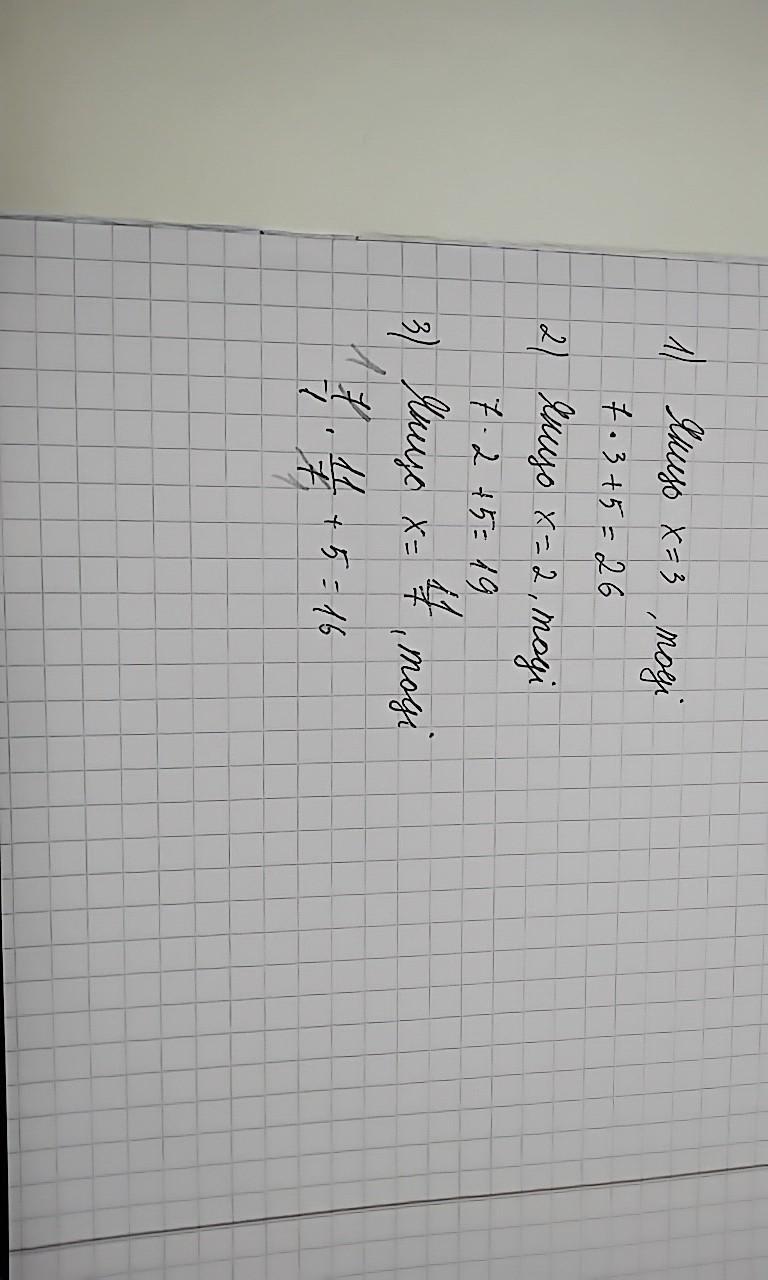 1) Якщо x=3, тоді
7·3+5=26
2) Якщо x=2, тоді
7·2+5=19
3) Якщо x=11/7, тоді
1
7/1 · 11/7 + 5 = 16
1